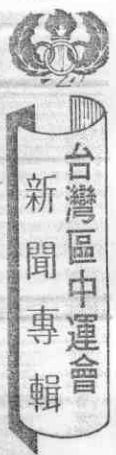 台灣區中運會
新聞專輯